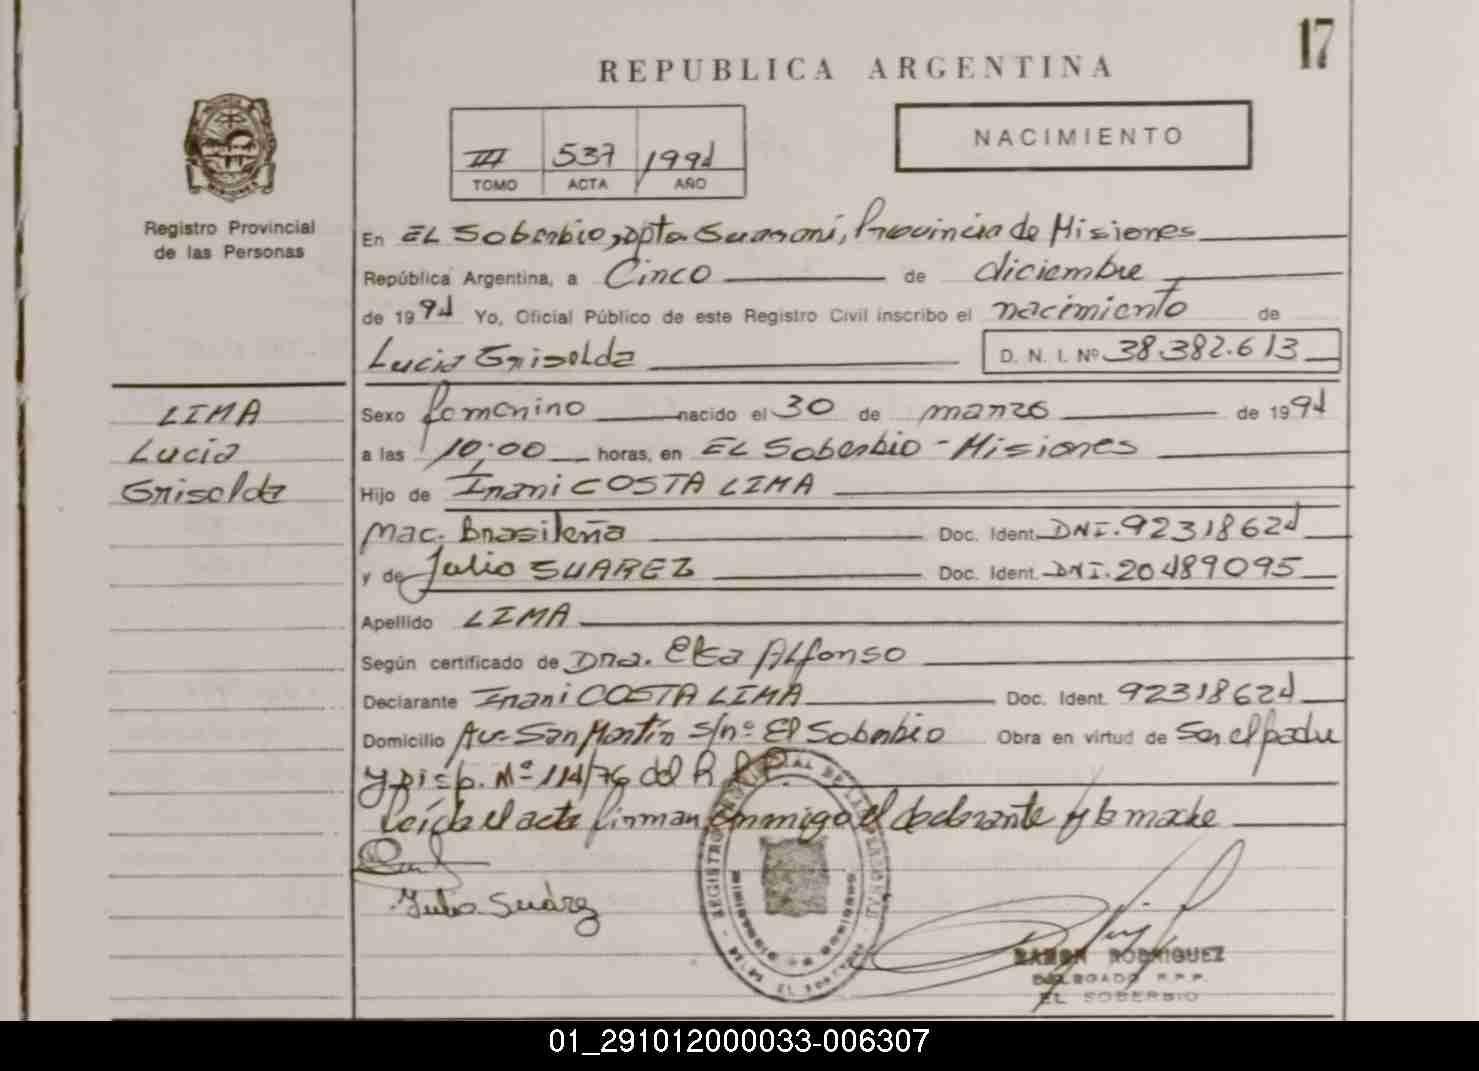 17
REPUBLICA ARGENTINA
III 537 1994
TOMO ACTA AÑO
NACIMIENTO
Registro Provincial
de las Personas
En EL Soberbio, Dpto Guaraní, Provincia de Misiones
República Argentina, a Cinco de diciembre
de 1994 Yo, Oficial Público de este Registro Civil inscribo el nacimiento de
Lucia Griselda D. N. I. Nº 38.382.613
LIMA
Lucia
Griselda
Sexo femenino nacido el 30 de marzo de 1994
a las 10:00 horas, en EL Soberbio - Misiones
Hijo de Irani COSTA LIMA
Nac. Brasileña Doc. Ident. DNI. 92318624
y de Julio SUAREZ Doc. Ident. DNI. 20489095
Apellido LIMA
Según certificado de Dra. Elsa Alfonso
Declarante Irani COSTA LIMA Doc. Ident. 92318624
Domicilio Av. San Martín s/nº El Soberbio Obra en virtud de Ser el padre
y Disp. Nº 114/76 del R.P.P.
Leída el acta firman conmigo el declarante y la madre
Julio Suárez
RAMON RODRIGUEZ
DELEGADO R.P.P.
EL SOBERBIO
01_291012000033-006307